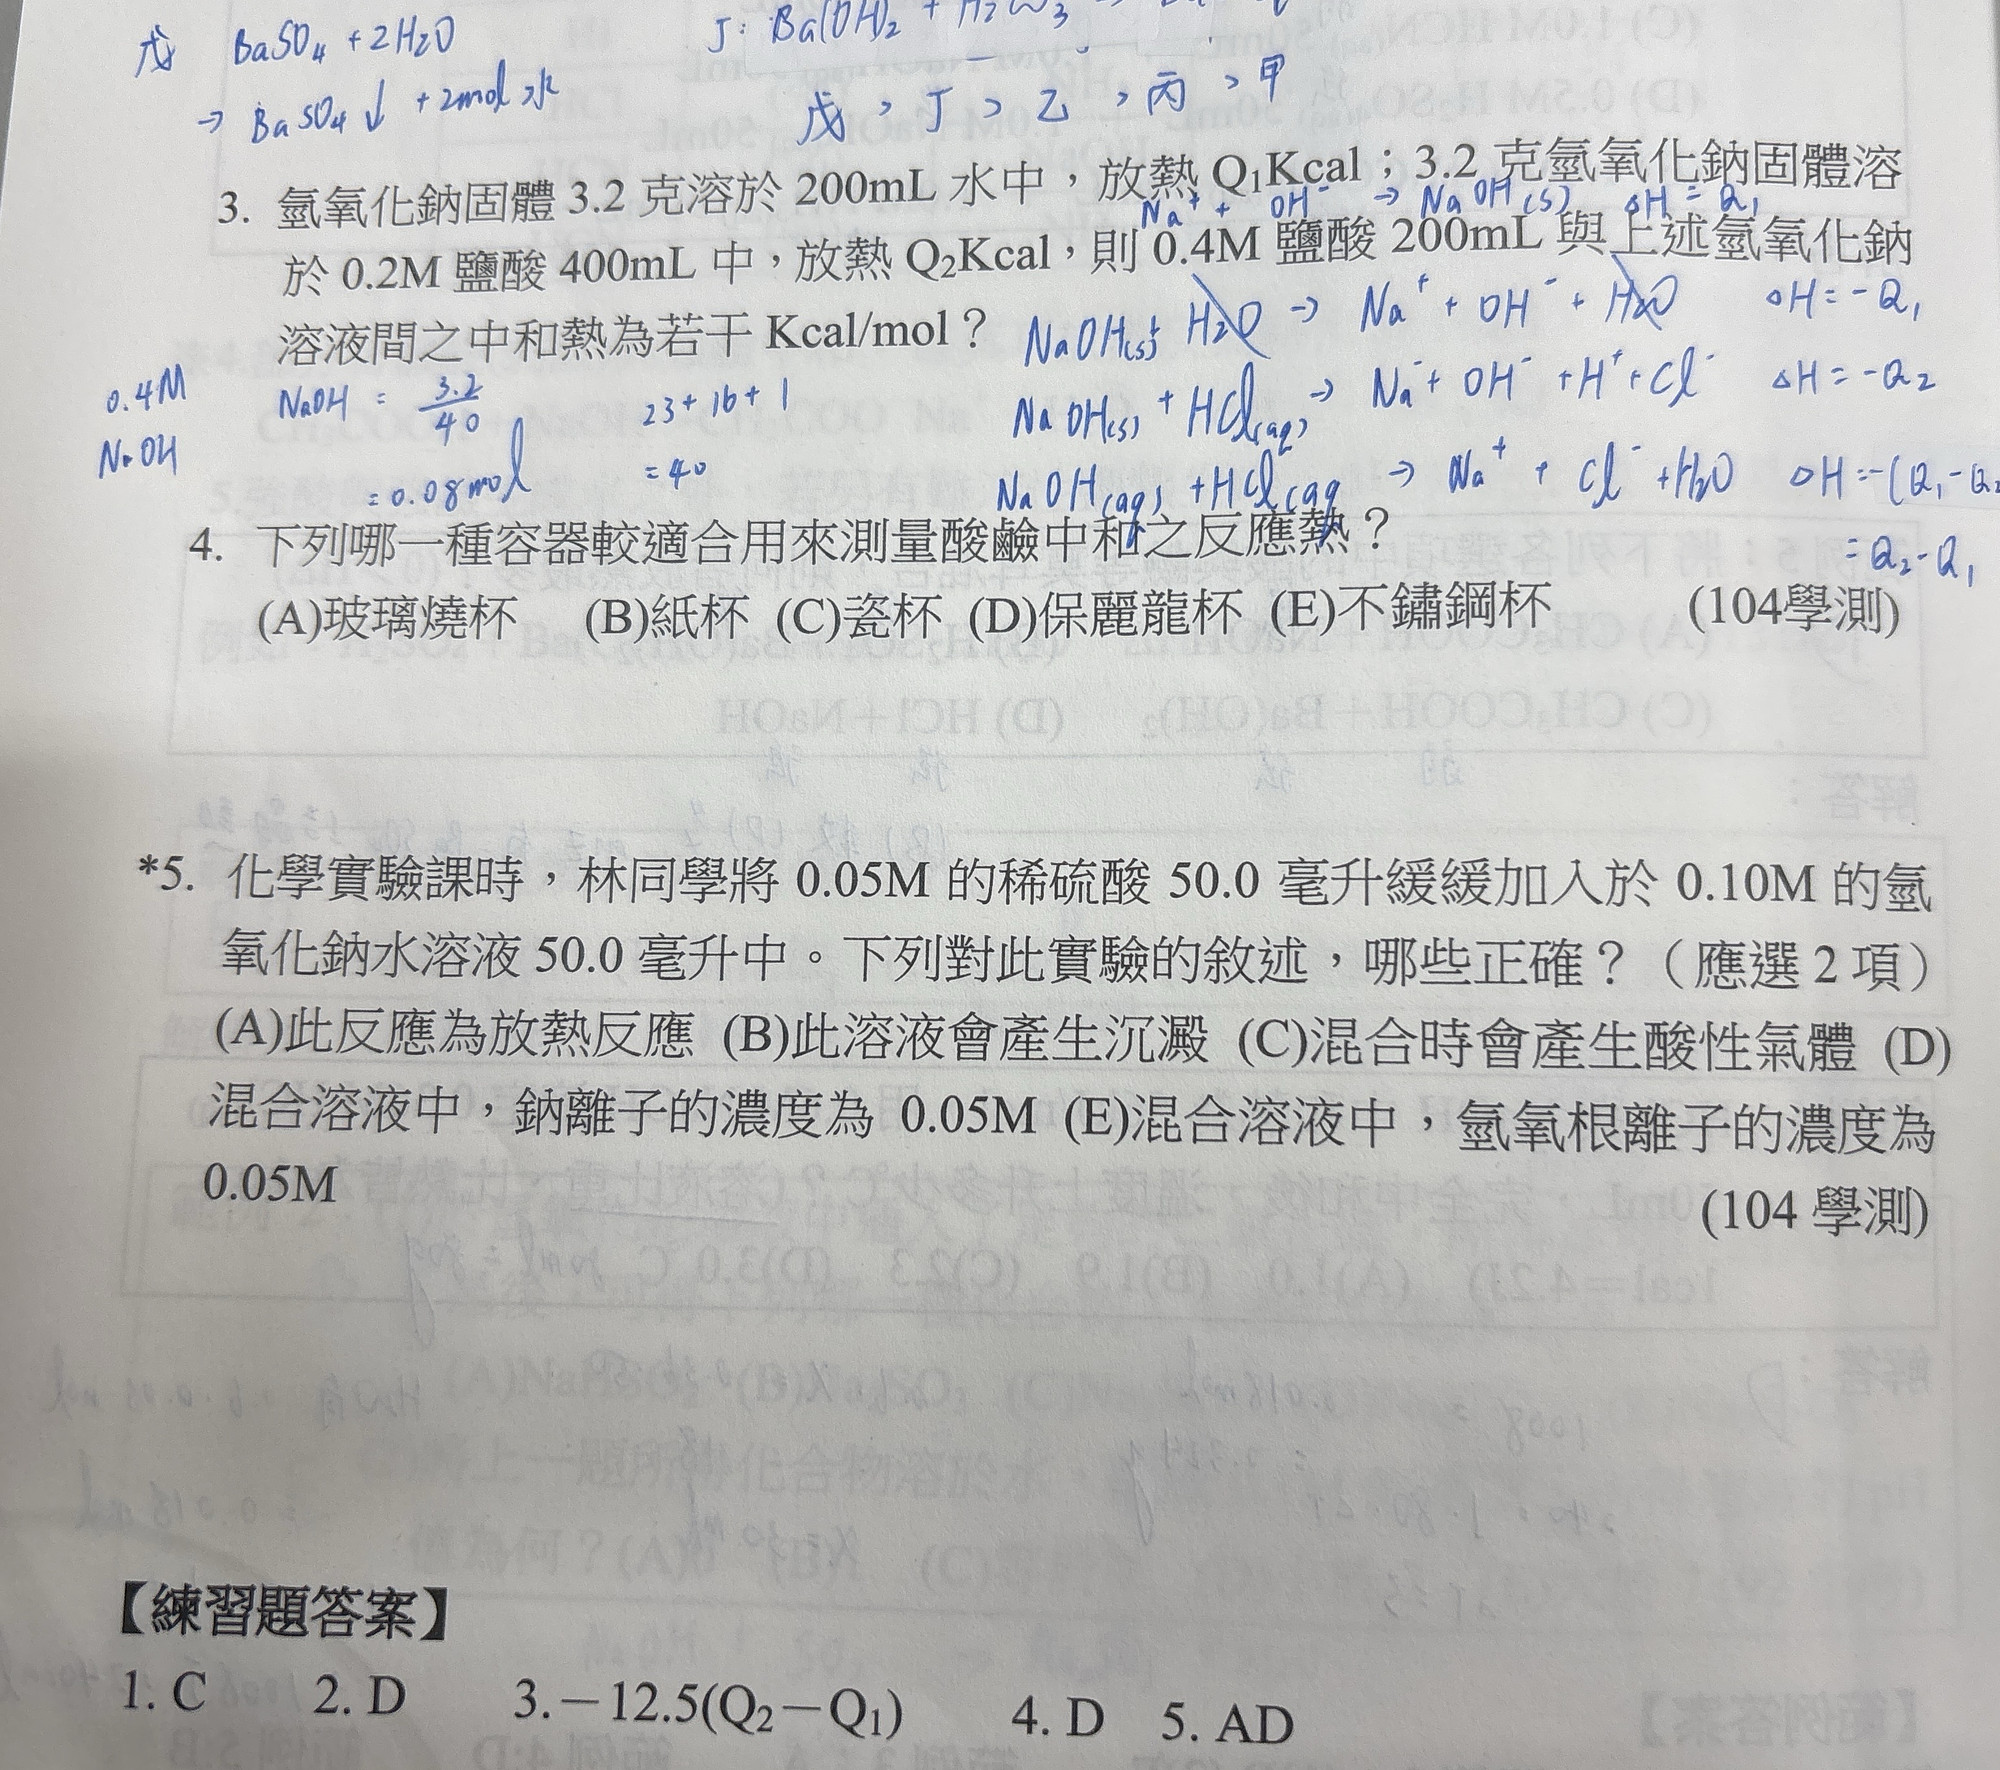 戊 BaSO₄ + 2H₂O
→ BaSO₄↓ + 2mol 水
丁: Ba(OH)₂ + H₂CO₃ →
戊 > 丁 > 乙 > 丙 > 甲
3. 氫氧化鈉固體 3.2 克溶於 200mL 水中，放熱 Q₁Kcal；3.2 克氫氧化鈉固體溶
Na⁺ + OH⁻ → NaOH(s) ΔH = Q₁
於 0.2M 鹽酸 400mL 中，放熱 Q₂Kcal，則 0.4M 鹽酸 200mL 與上述氫氧化鈉
溶液間之中和熱為若干 Kcal/mol？
NaOH(s) + H₂O → Na⁺ + OH⁻ + H₂O ΔH = -Q₁
0.4M
NaOH
NaOH = 3.2/40
= 0.08mol
23 + 16 + 1
= 40
NaOH(s) + HCl(aq) → Na⁺ + OH⁻ + H⁺ + Cl⁻ ΔH = -Q₂
NaOH(aq) + HCl(aq → Na⁺ + Cl⁻ + H₂O ΔH = -(Q₁ - Q₂
= Q₂ - Q₁
4. 下列哪一種容器較適合用來測量酸鹼中和之反應熱？
(A)玻璃燒杯 (B)紙杯 (C)瓷杯 (D)保麗龍杯 (E)不鏽鋼杯 (104學測)
*5. 化學實驗課時，林同學將 0.05M 的稀硫酸 50.0 毫升緩緩加入於 0.10M 的氫
氧化鈉水溶液 50.0 毫升中。下列對此實驗的敘述，哪些正確？（應選 2 項）
(A)此反應為放熱反應 (B)此溶液會產生沉澱 (C)混合時會產生酸性氣體 (D)
混合溶液中，鈉離子的濃度為 0.05M (E)混合溶液中，氫氧根離子的濃度為
0.05M (104 學測)
【練習題答案】
1. C 2. D 3.－12.5(Q₂－Q₁) 4. D 5. AD